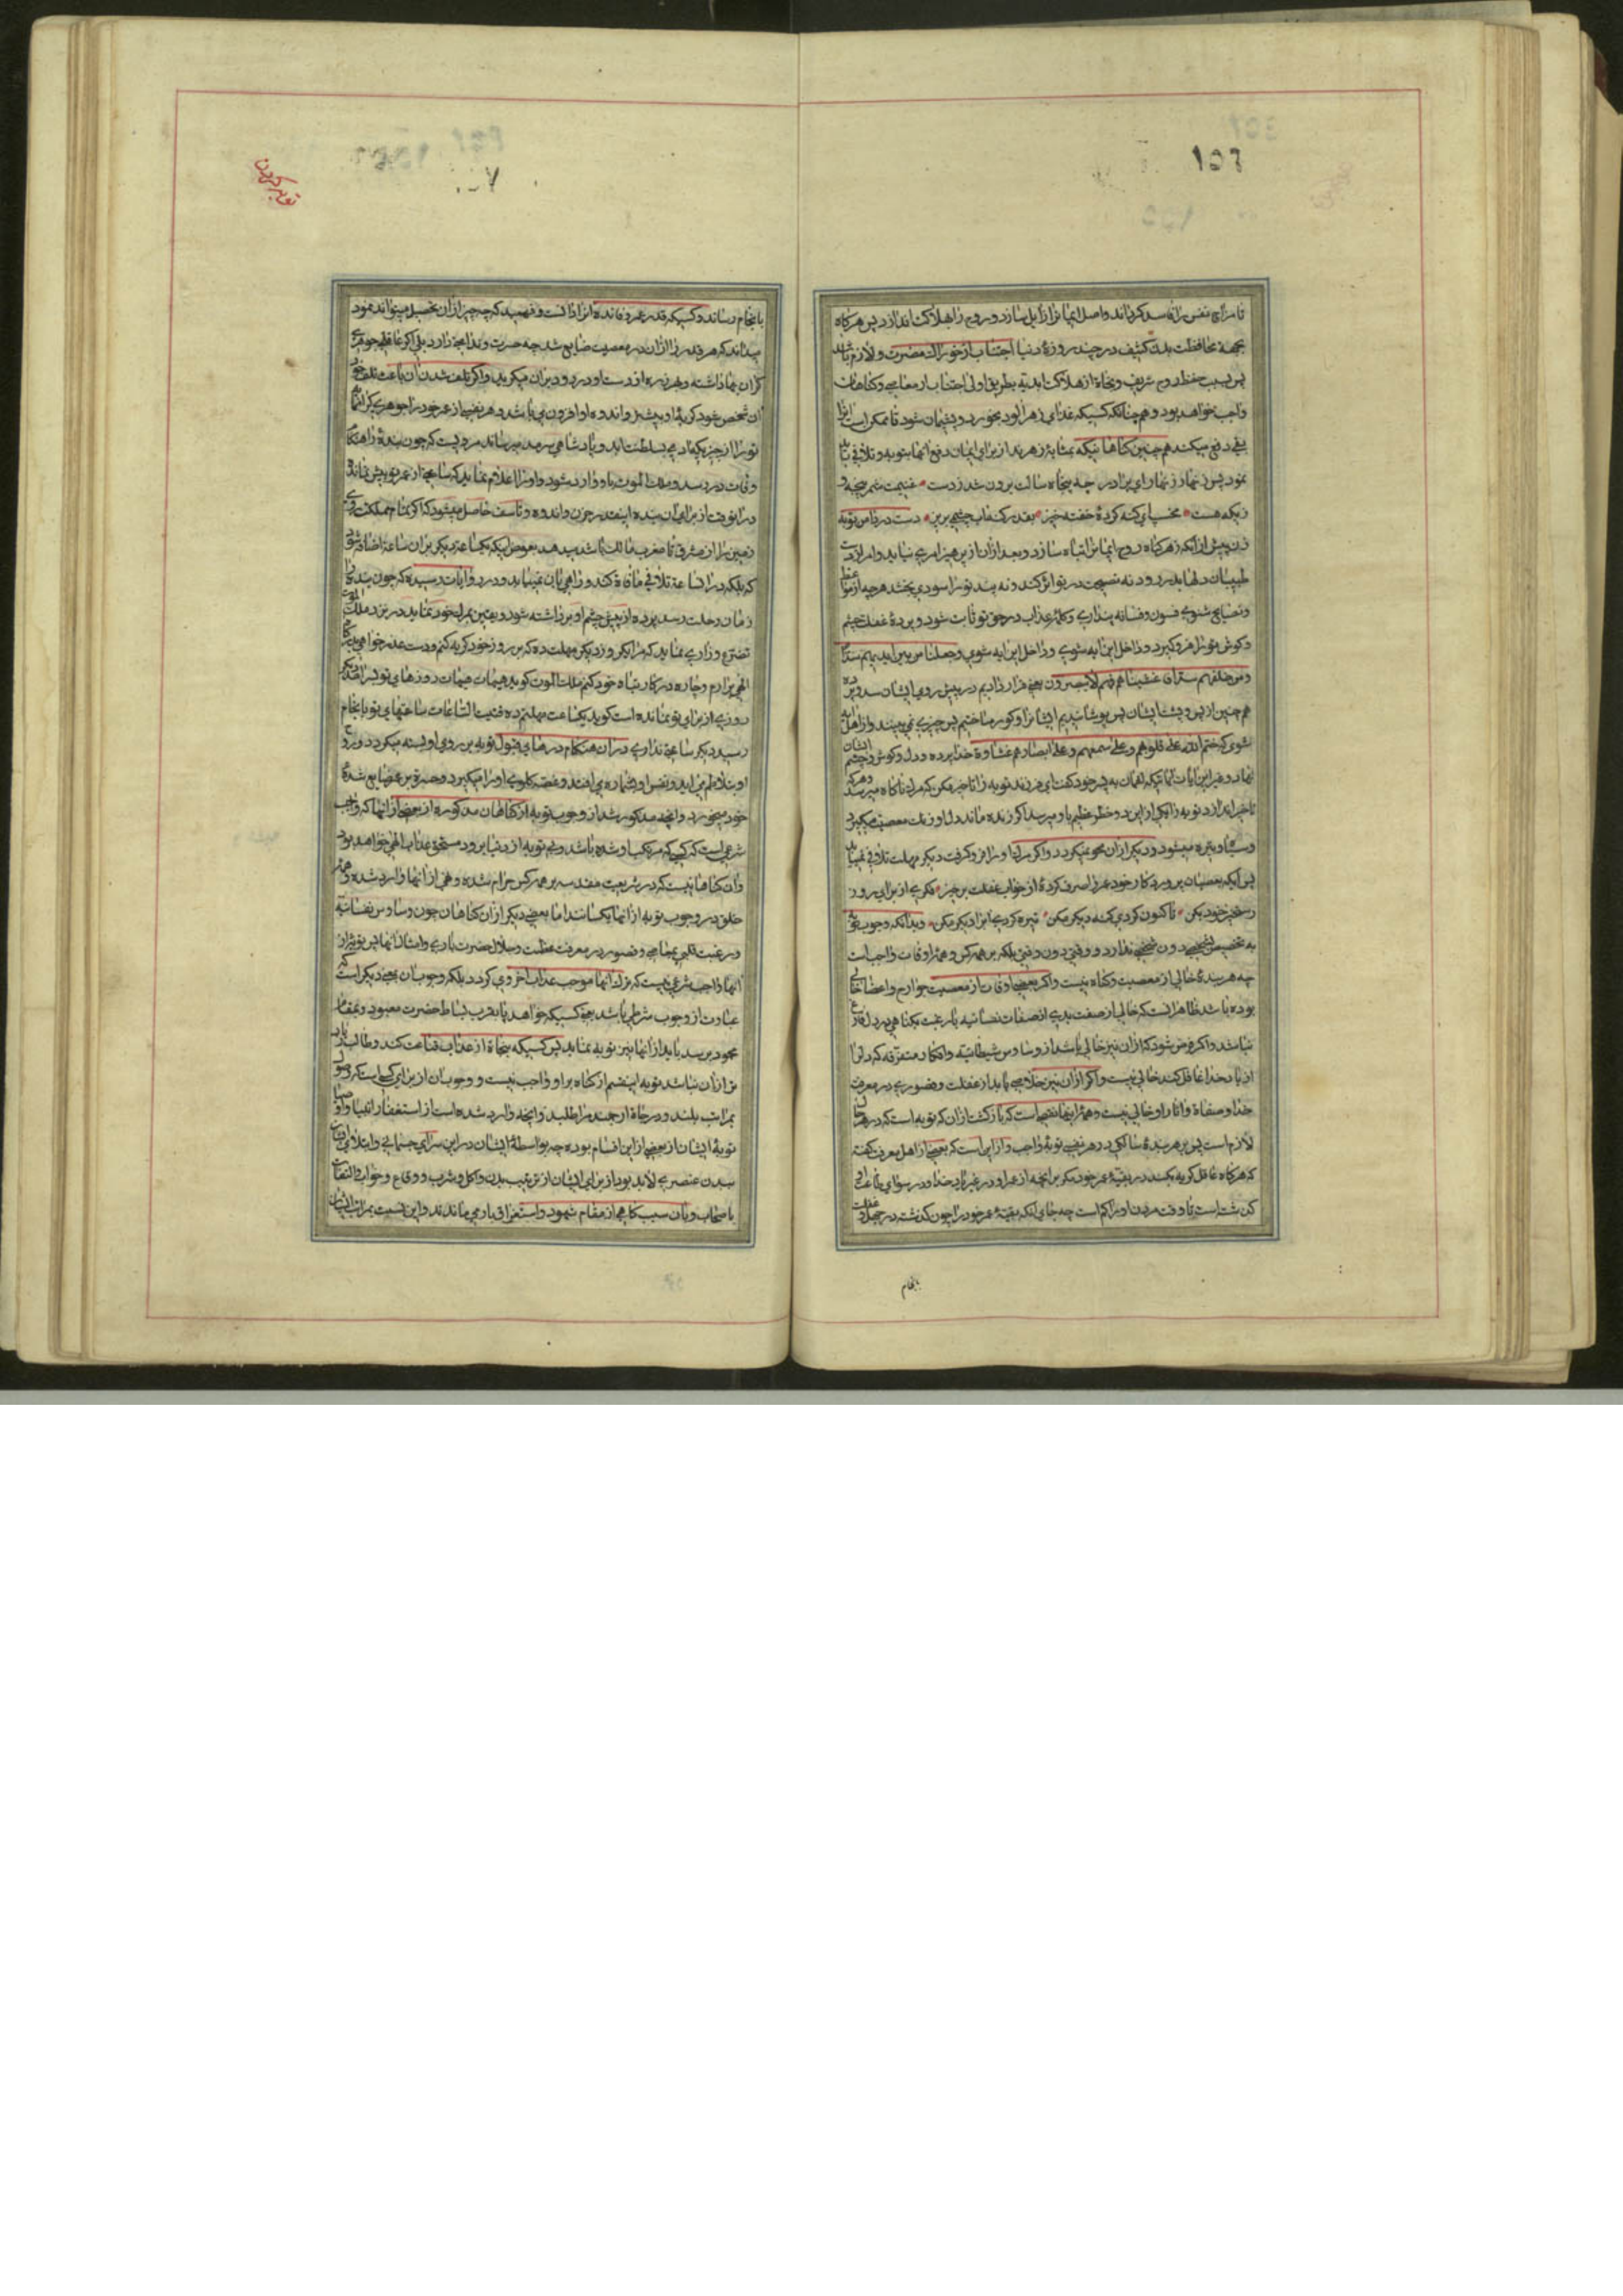 تا مزاج نفس را فاسد گرداند و اصل ایمانرا زایل سازد و روح را بهلاکت اندازد پس هرگاه
بجهة محافظت بدن کثیف در چند روزهٔ دنیا اجتناب از خوراک مضرت و لازم باشد
پس بسبب حفظ روح شریف و نجاة از هلاکت ابدیه بطریق اولی اجتناب از معاصی و گناهان
واجب خواهد بود و همچنانکه کسیکه غذای زهرآلود بخورد و پشیمان شود تا ممکن است آنرا
بقی دفع میکند همچنین گناهانیکه بمثابهٔ زهرند از برای ایمان دفع آنها بتوبه و تلافی باید
نمود پس زنهار زنهار ای برادر چه پنجاه سالت برون شد ز دست غنیمت شمر پنجه و
زیکه هست مخسب ای گنه کردهٔ خفته خیز بعذر گناه آب چشمی بریز دست در دامن توبه
زن پیش از آنکه زهر گناه روح ایمانرا تباه سازد و بعد از آن از پرهیز امری نیاید و امر از دست
طبیبان دلها بدر رود نه نصیحت در تو اثر کند و نه پند تو را سودی بخشد هر چه از مواعظ
و نصایح شنوی فسون و فسانه پنداری و کلمهٔ عذاب در حق تو ثابت شود و پردهٔ غفلت چشم
و گوش تو را فرو گیرد و داخل این آیه شوی و داخل این آیه شوی و جعلنا من بین ایدیهم سدا
و من خلفهم سدا فاغشیناهم فهم لا یبصرون یعنی قرار دادیم در پیش روی ایشان سد و پرده
همچنین از پس و پشت ایشان پس پوشانیدیم ایشانرا و کور ساختیم پس چیزی نمی‌بینند و از اهل آیه
شوی که ختم الله علی قلوبهم و علی سمعهم و علی ابصارهم غشاوة خدا پرده و دل و گوش و چشم ایشان
نهاد و غیر این آیات آیاتیکه لقمان به پسر خود گفت ای فرزند توبه را تاخیر مکن که مرگ ناگاه میرسد و هر که
تاخیر اندازد توبه را یکی از این دو خطر عظیم باو میرسد اگر زنده ماند دل او زنک معصیت میگیرد
و سیاه و تیره میشود و دیگر از آن محو نمیگردد و اگر مرگ او را فرو گرفت دیگر مهلت تلافی نمییابد
پس ایکه بعصیان پروردگار خود عمر را صرف کردهٔ از خواب غفلت برخیز فکری از برای روز
رستخیز خود بکن تا کنون کردی گنه دیگر مکن تیره کردی آب را دیگر مکن و بدانکه وجوب توبه
به تخصیص شخصی دون شخصی ندارد و وقتی دون وقتی بلکه بر همه کس و همهٔ اوقات واجب است
چه هر بندهٔ خالی از معصیت و گناه نیست و اگر بعضی اوقات از معصیت جوارح و اعضا خالی
بوده باشد ظاهر آنست که خالی از صفت بدی از صفات نفسانیه یا رغبت بگناهی در دل فارغ
نباشد و اگر فرض شود که از آن نیز خالی باشد از وساوس شیطانیه و افکار متفرقه که دلرا
از یاد خدا غافل کند خالی نیست و اگر از آن نیز خلاصی یابد از غفلت و قصوری در معرفت
خدا و صفاة و آثار او خالی نیست و همهٔ اینها نقصی است که بازگشت از آن که توبه است که در هر حال
لازم است پس بر هر بندهٔ سالکی در هر نفسی توبهٔ واجب و از این است که بعضی از اهل معرفت گفته
که هرگاه عاقل گریه نکند در بقیهٔ عمر خود مگر بر آنچه از عمر او در غیر یاد خدا و در رسوای طاعت او
گذشته است تا وقت مردن او را کم است چه جای آنکه بقیهٔ عمر خود را چون گذشته در جهل و غفلت
بانجام
بانجام رساند و کسیکه قدر عمر و فائده آنرا دانست و فهمید که چه چیز از آن تحصیل میتواند نمود
میداند که هر قدر را از آن در معصیت ضایع شد چه حسرت و ندامتی دارد بلی اگر عاقلی جوهری
گران بها داشته و بهرزه از دست او در رود بر آن میگرید و اگر تلف شدن آن باعث تلف خود
آن شخص شود گریهٔ او بیشتر و اندوه او افزون می‌باشد و هر نفسی از عمر خود را جوهری گرانبها
تو را از چیزیکه ادمی بسلطنت ابد و پادشاهی سرمد میرساند مرویست که چون بندهٔ را هنگام
وفات در رسد و ملک الموت باو وارد شود و او را اعلام نماید که ساعتی از عمر تو بیش نمانده
در آنوقت از برای آن بنده اینقدر حزن و اندوه و تأسف حاصل میشود که اگر تمام مملکت روی
زمین را از مشرق تا مغرب مالک باشد میدهد بعوض اینکه یکساعة دیگر بر آن ساعة اضافه شود
که بلکه در آن ساعة تلافی مافات کند و راهی بآن نمییابد و در روایات رسیده که چون بنده را
زمان رحلت رسد پرده از پیش چشم او برداشته شود و یقین بمرگ خود نماید در نزد ملک الموت
تضرع و زاری نماید که مرا یک روز دیگر مهلت ده که بر روز خود گریه کنم و دست عذر خواهی بدرگاه
الهی برارم و چاره در کار تباه خود کنم ملک الموت گوید هیهات هیهات روزهای تو بسر آمد دیگر
روزی از برای تو نمانده است گوید یکساعت مهلتم ده فنیت الساعات ساعتهای تو بانجام
رسید دیگر ساعتی نداری در آن هنگام درهای قبول توبه بر روی او بسته میگردد و روح
او بتلاطم می‌آید و نفس او بشماره می‌افتد و غصه گلوی او را میگیرد و حسرة بر عمر ضایع شدهٔ
خود میخورد و آنچه مذکور شد از وجوب توبه از گناهان مذکوره از بعضی از آنها که واجب
شرعی است که کسی که مرتکب او شده باشد و بی توبه از دنیا برود مستحق عذاب الهی خواهد بود
و آن گناهانیست که در شریعت مقدسه بر همه کس حرام شده و نهی از آنها وارد شده و همهٔ
خلق در وجوب توبه از آنها یکسانند اما بعضی دیگر از آن گناهان چون وساوس نفسانیه
و رغبت قلبی بمعاصی و قصور در معرفت عظمت و جلال حضرت باری و امثال آنها پس توبه از
آنها واجب شرعی نیست که ترک آنها موجب عذاب اخروی گردد بلکه وجوب آن بمعنی دیگر است که
عبارت از وجوب شرطی باشد یعنی کسیکه خواهد تا بقرب بساط حضرت معبود و بمقام
محمود برسد باید از آنها نیز توبه نماید پس کسیکه بنجاة از عذاب قناعت کند و طالب زیاده
تر از آن نباشد توبه اینقسم از گناه بر او واجب نیست و وجوب آن از برای کسی است که وصول
بمراتب بلند و درجاة ارجمند را طلبد و آنچه وارد شده است از استغفار انبیا و اوصیا
توبهٔ ایشان از بعضی از این اقسام بوده چه بواسطهٔ ایشان در این سرای جسمانی و ابتلای ایشان
ببدن عنصری لابد بود از برای ایشان از ترتیب بدن و اکل و شرب و وقاع و خواب و التفات
باصحاب و بآن سبب گاهی از مقام شهود و استغراق باز می‌ماندند و این نسبت بمراتب ایشان